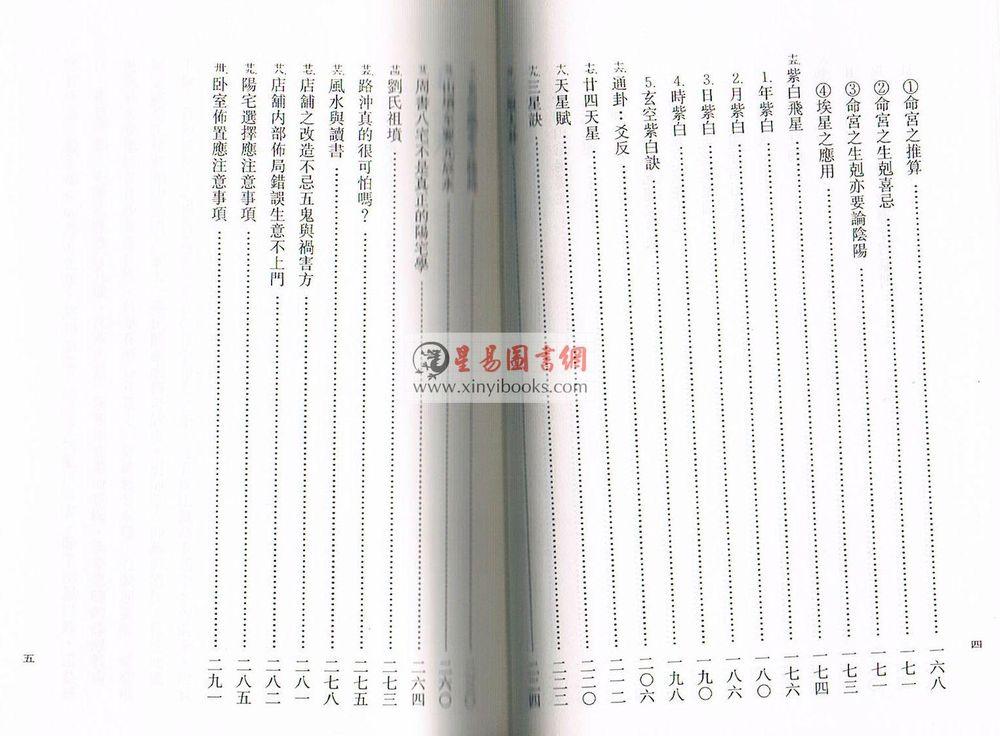 ①命宮之推算 一六八
②命宮之生剋喜忌 一七一
③命宮之生剋亦要論陰陽 一七三
④埃星之應用 一七四
十五、紫白飛星 一七六
1.年紫白 一八〇
2.月紫白 一八六
3.日紫白 一九〇
4.時紫白 一九八
5.玄空紫白訣 二〇六
十六、通卦：爻反 二一二
十七、廿四天星 二二〇
十八、天星賦 二二二
十九、三星訣
四
周書八宅不是真正的陽宅學 二六四
劉氏祖墳 二七三
路沖真的很可怕嗎？ 二七五
風水與讀書 二七八
店舖之改造不忌五鬼與禍害方 二八一
店舖內部佈局錯誤生意不上門 二八二
陽宅選擇應注意事項 二八五
卧室佈置應注意事項 二九一
五
星易圖書網
www.xinyibooks.com